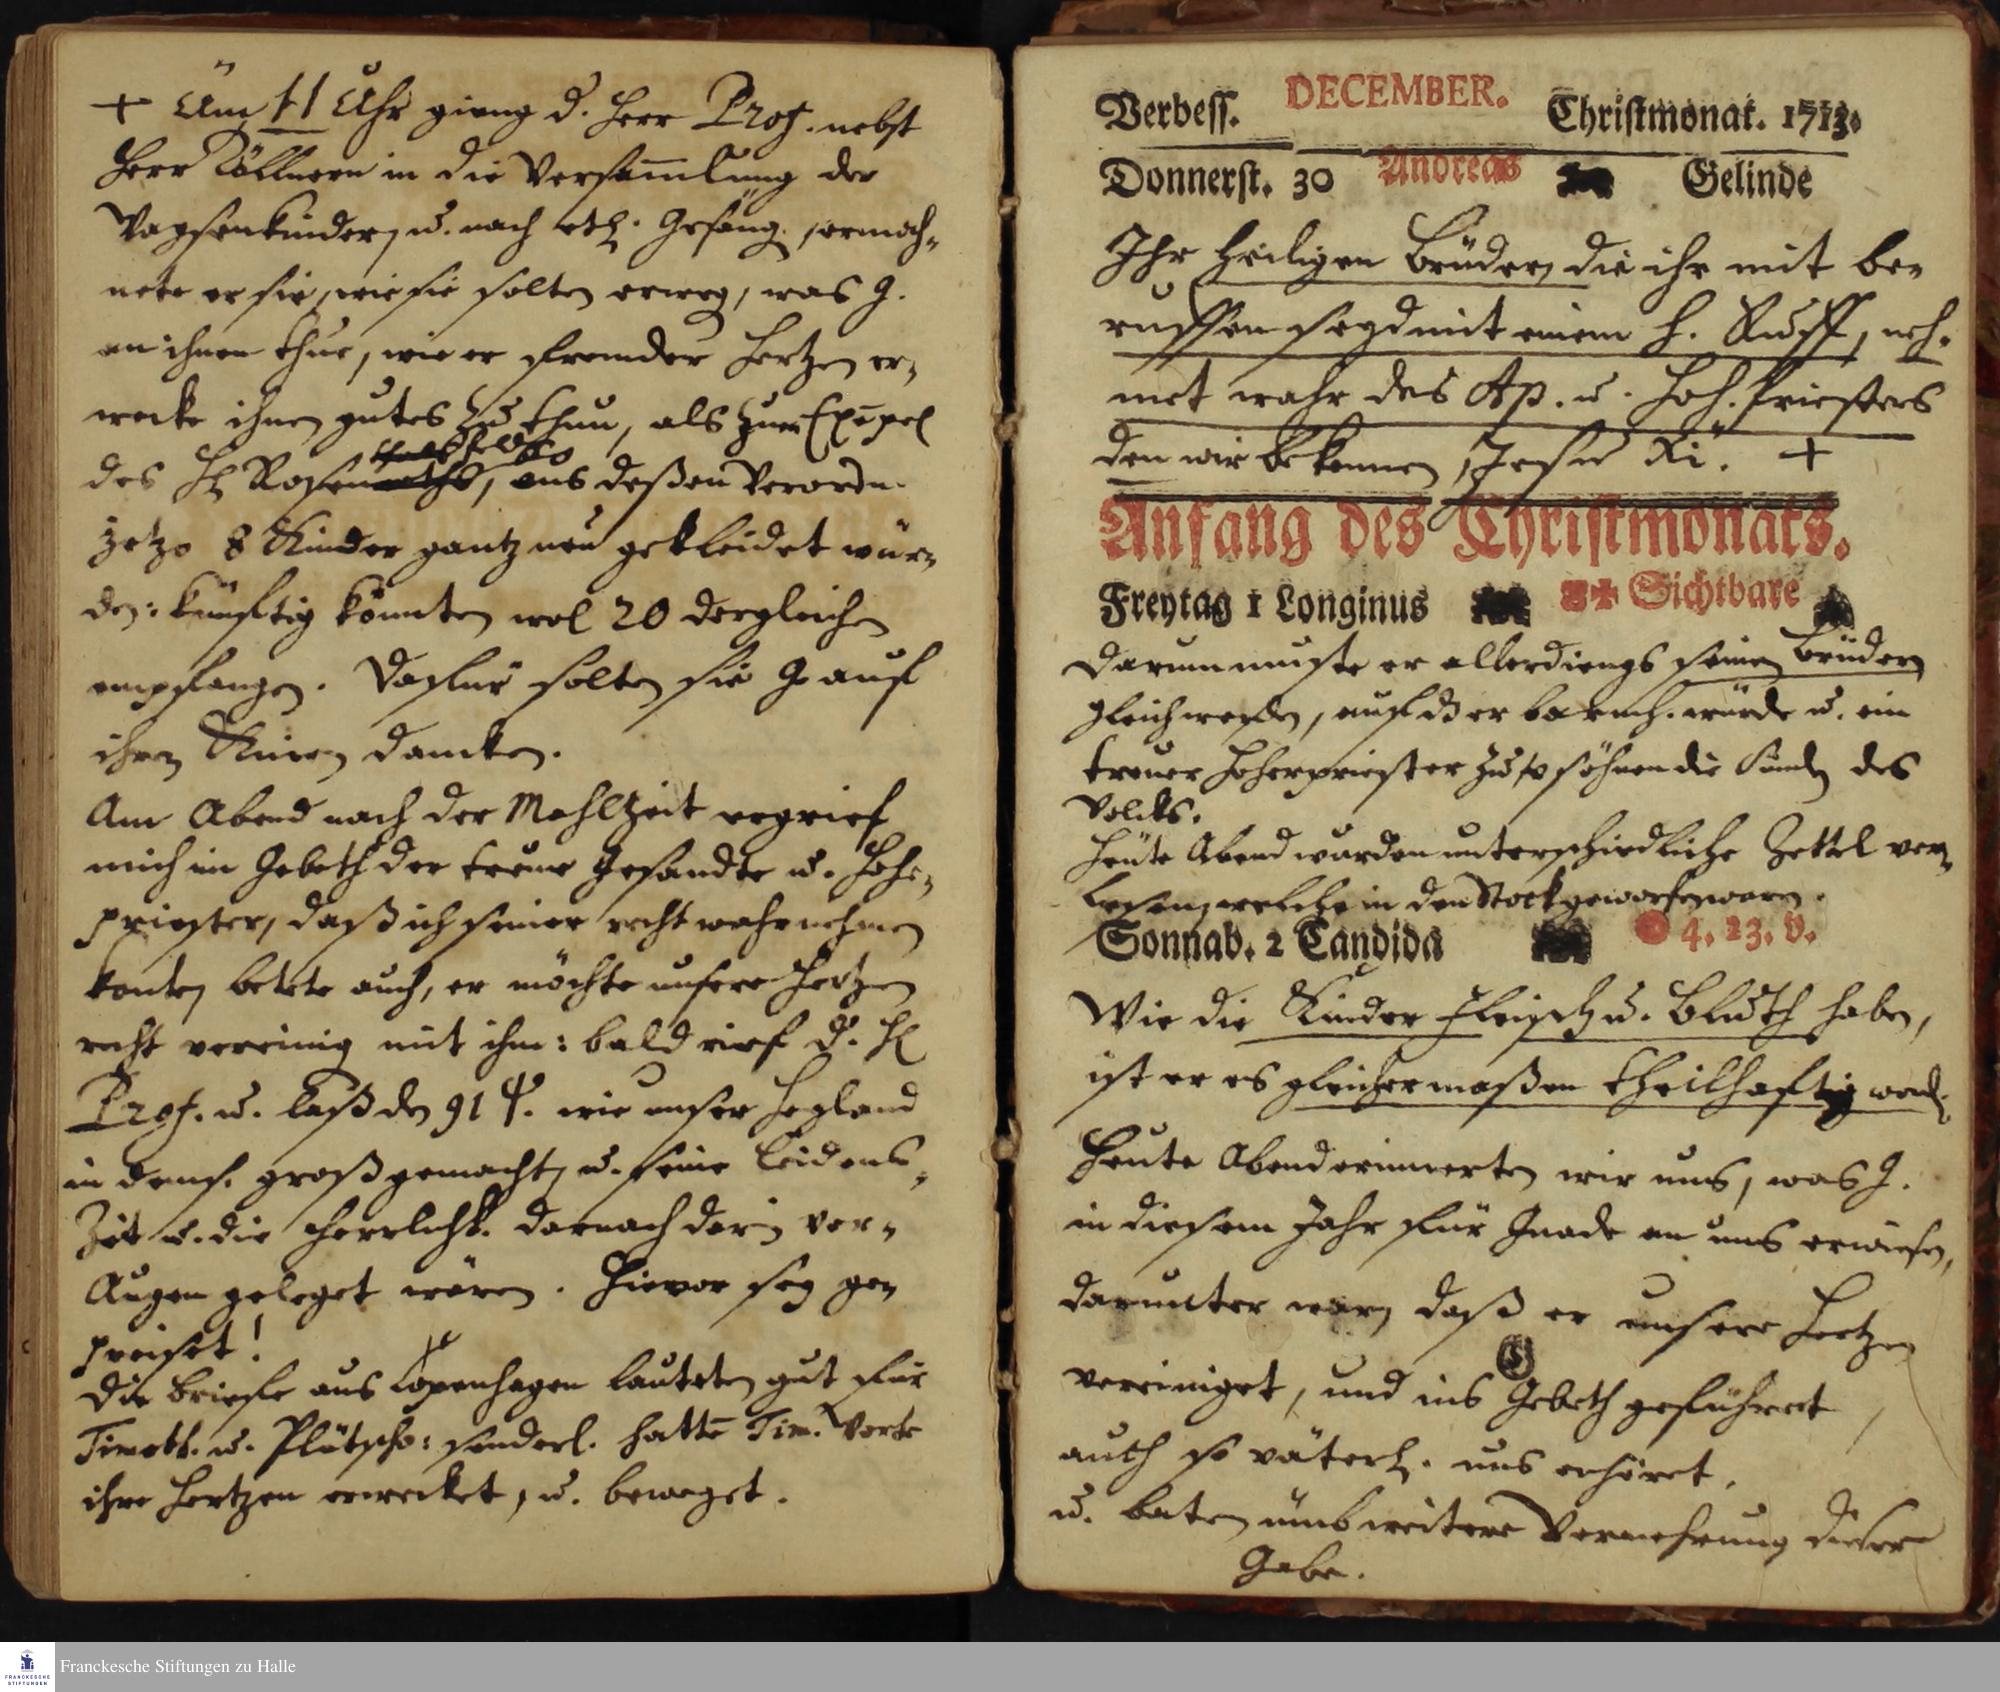 + Üm 11 Uhr gieng d. Herr Prof. nebst
Herr Töllnern in die Versam̄lung der
Waysenkinder, u. nach etl. Gesäng. ermah-
nete er sie, wie sie solten erweg, was G.
an ihnen thue, wie er fremder Hertzen er-
wecke ihnen gutes zu thun, als zum Exempel
des H. aus deßen Verordn.
jetzo 8 Kinder gantz neu gekleidet wür-
den: künfftig könnten wol 20 dergleichen
empfangen. Dafür solten sie G. auf
ihren Knien dancken.
Am Abend nach der Mahlzeit ergrief
mich im Gebeth der treue Gesandte u. Hohe-
priester, daß ich seiner recht wahrnehmen
konte, betete auch, er möchte unsere Hertzen
recht vereinig mit ihm: bald rief d. H.
Prof. u. laß den 91 ψ. wie unser Heyland
in dems. groß gemacht, u. seine Leidens-
Zeit u. die Herrlichk. darnach darin vor
Augen geleget wären. Hievor sey ge-
preiset!
Die Briefe aus Copenhagen lauteten gut für
Timoth. u. Plütscho: sonderl. hatte Tim. Worte
ihre Hertzen erwecket, u. beweget.
Verbess. DECEMBER. Christmonat. 1713.
Donnerst. 30 Andreas Gelinde
Ihr heiligen Brüder, die ihr mit be-
ruffen seyd mit einem h. Ruff, neh-
met wahr des Ap. u. Hoh. Priesters
den wir bekennen, Jesu +
Anfang des Christmonats.
Freytag 1 Longinus Sichtbare
Darum muste er allerdings seinen Brüdern
gleich werden, auf dß er barmh. würde u. ein
treuer Hoherpriester zu versöhnen die Sünde des
Volcks.
Heute Abend wurden unterschiedliche Zettel ver-
lesen, welche in den Stock geworfen waren.
Sonnab. 2 Candida 4. 23. v.
Wie die Kinder Fleisch u. Bluth haben,
ist er es gleichermaßen theilhafftig word.
Heute Abend erinnerten wir uns, was G.
in diesem Jahr für Gnade an uns erwiesen,
darunter war, daß er unsere Hertzen
vereiniget, und ins Gebeth geführet
auch so väterl. uns erhöret,
u. baten umb weitere Vermehrung dieser
Gabe.
Franckesche Stiftungen zu Halle
FRANCKESCHE
STIFTUNGEN